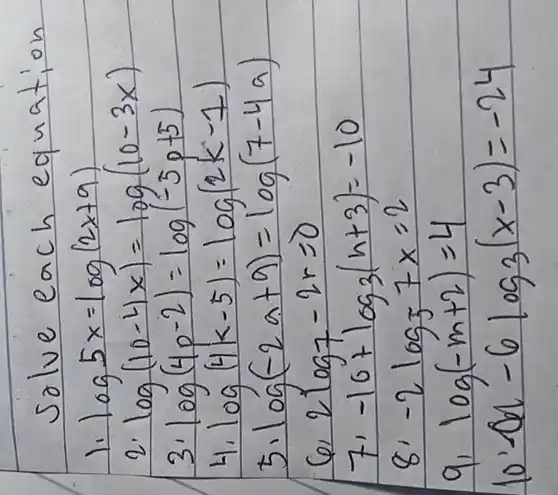 Solve each equation
1. log 5x = log(2x+9)
2. log(10-4x) = log(10-3x)
3. log(4p-2) = log(-5p+5)
4. log(4k-5) = log(2k-1)
5. log(-2a+9) = log(7-4a)
6. 2 log₇ -2r = 0
7. -10 + log₃(n+3) = -10
8. -2 log₅ 7x = 2
9. log(-m+2) = 4
10. -6 log₃(x-3) = -24